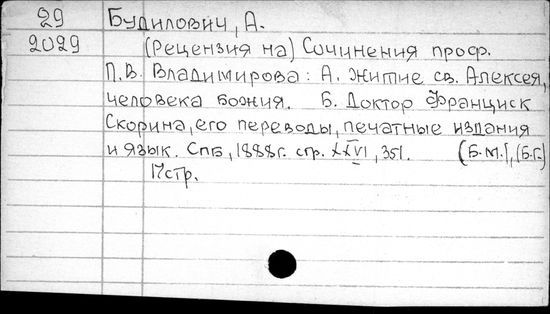 29 Будилович, А.
2029 (Рецензия на) Сочинения проф.
П.В. Владимирова: А. Житие св. Алексея,
человека божия. Б. Доктор Франциск
Скорина, его переводы, печатные издания
и язык. Спб, 1888г. стр. XXVI, 351. (Б.м.), (Б.г.)
17стр.